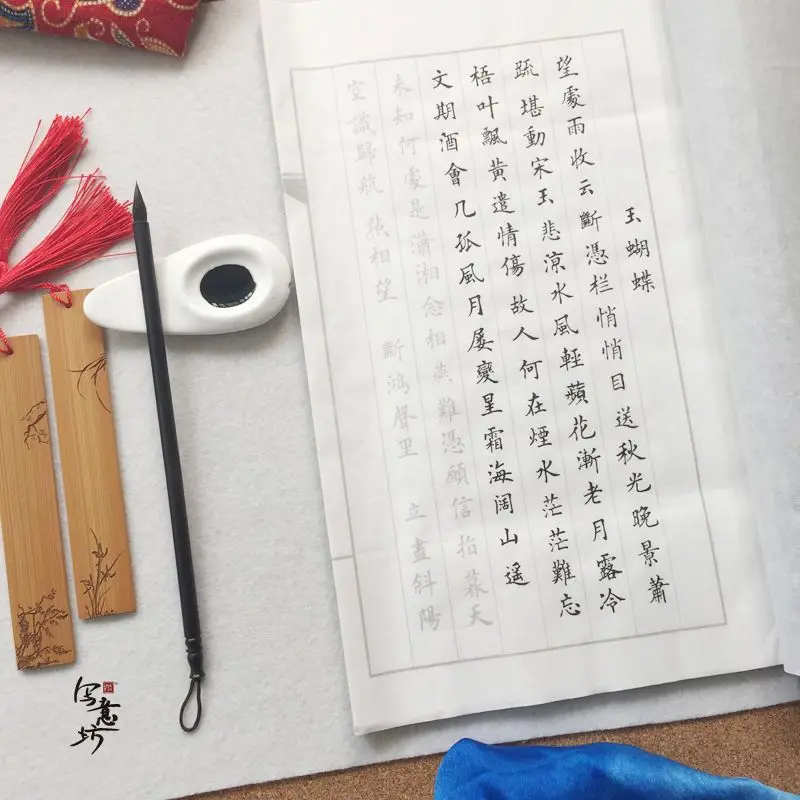 玉蝴蝶
望處雨收云斷憑栏悄悄目送秋光晚景蕭
疏堪動宋玉悲涼水風輕蘋花漸老月露冷
梧叶飄黃遣情傷故人何在煙水茫茫難忘
文期酒會几孤風月屡變星霜海阔山遥
未知何處是瀟湘念相燕難憑信指暮天
空識歸航 黯相望 斷鴻聲里 立盡斜陽
写意坊